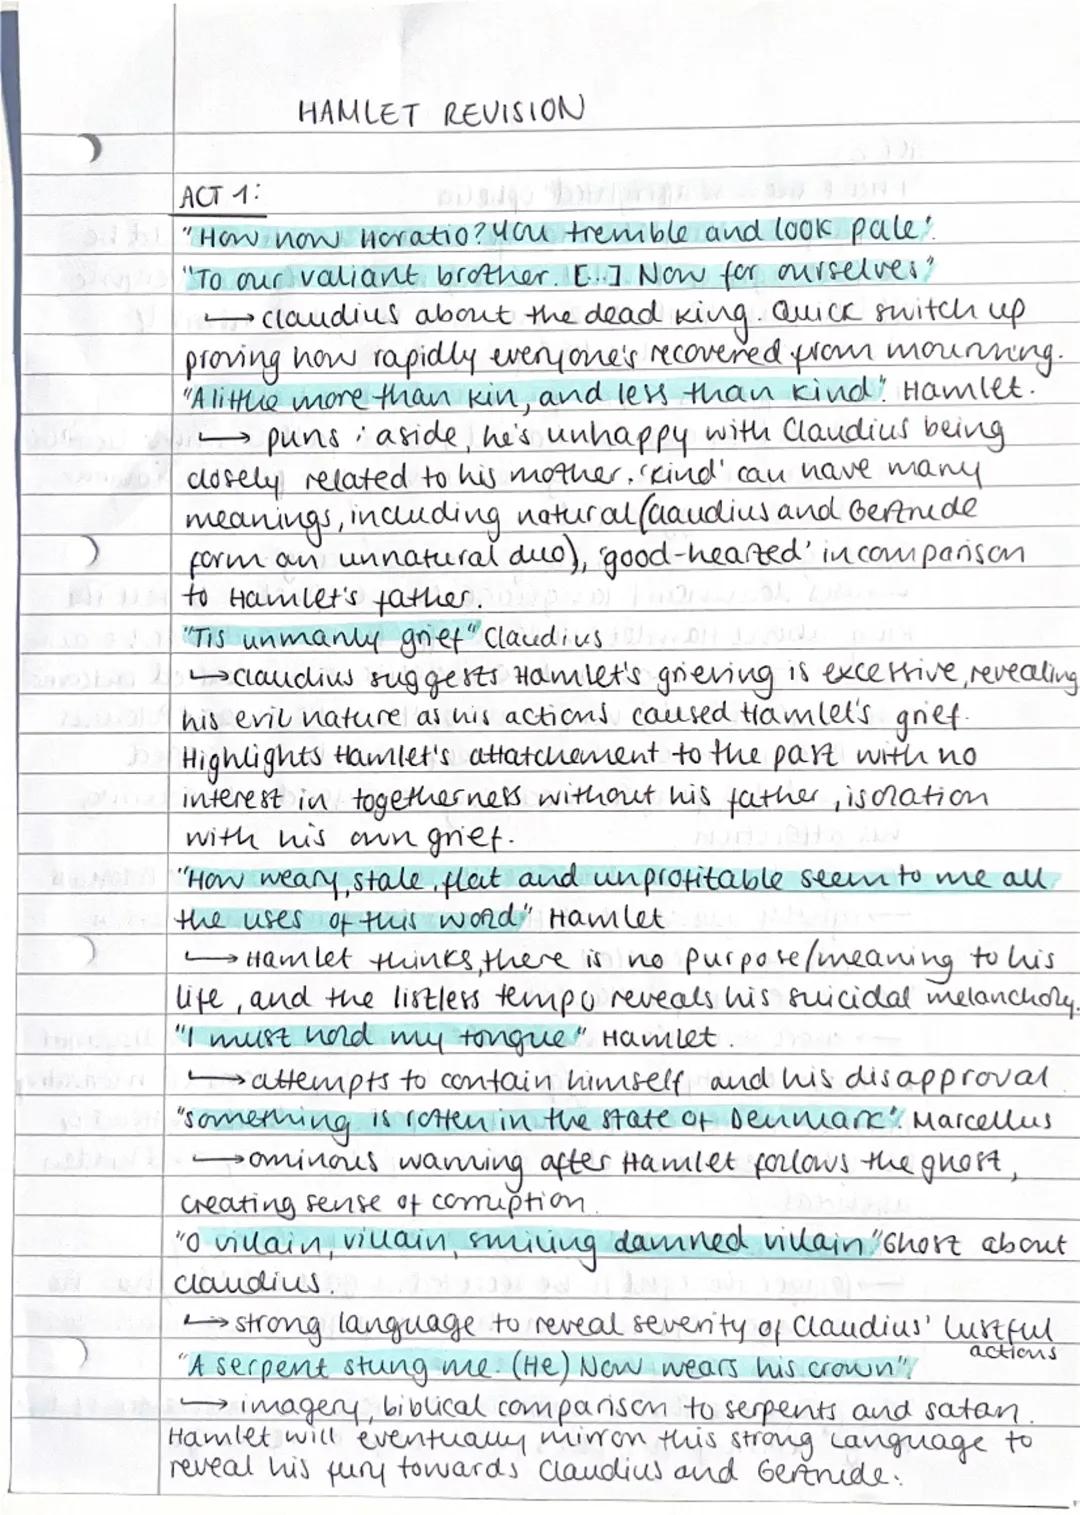 HAMLET REVISION
ACT 1:
"How now Horatio? You tremble and look pale".
"To our valiant brother. [...] Now for ourselves"
→ Claudius about the dead king. Quick switch up
proving how rapidly everyone's recovered from mourning.
"A little more than kin, and less than kind". Hamlet.
→ puns : aside, he's unhappy with Claudius being
closely related to his mother. 'kind' can have many
meanings, including natural (Claudius and Gertrude
form an unnatural duo), 'good-hearted' in comparison
to Hamlet's father.
"Tis unmanly grief" Claudius
→ Claudius suggests Hamlet's grieving is excessive, revealing
his evil nature as his actions caused Hamlet's grief.
Highlights Hamlet's attatchement to the past with no
interest in togetherness without his father, isolation
with his own grief.
"How weary, stale, flat and unprofitable seem to me all
the uses of this word" Hamlet
→ Hamlet thinks, there is no purpose/meaning to his
life, and the listless tempo reveals his suicidal melancholy.
"I must hold my tongue" Hamlet.
→ attempts to contain himself and his disapproval
"something is rotten in the state of Denmark". Marcellus
→ ominous warning after Hamlet follows the ghost,
creating sense of corruption.
"O villain, villain, smiling damned villain" Ghost about
Claudius.
→ strong language to reveal severity of Claudius' lustful
actions
"A serpent stung me. (He) Now wears his crown"
→ imagery, biblical comparison to serpents and satan.
Hamlet will eventually mirror this strong language to
reveal his fury towards Claudius and Gertrude.